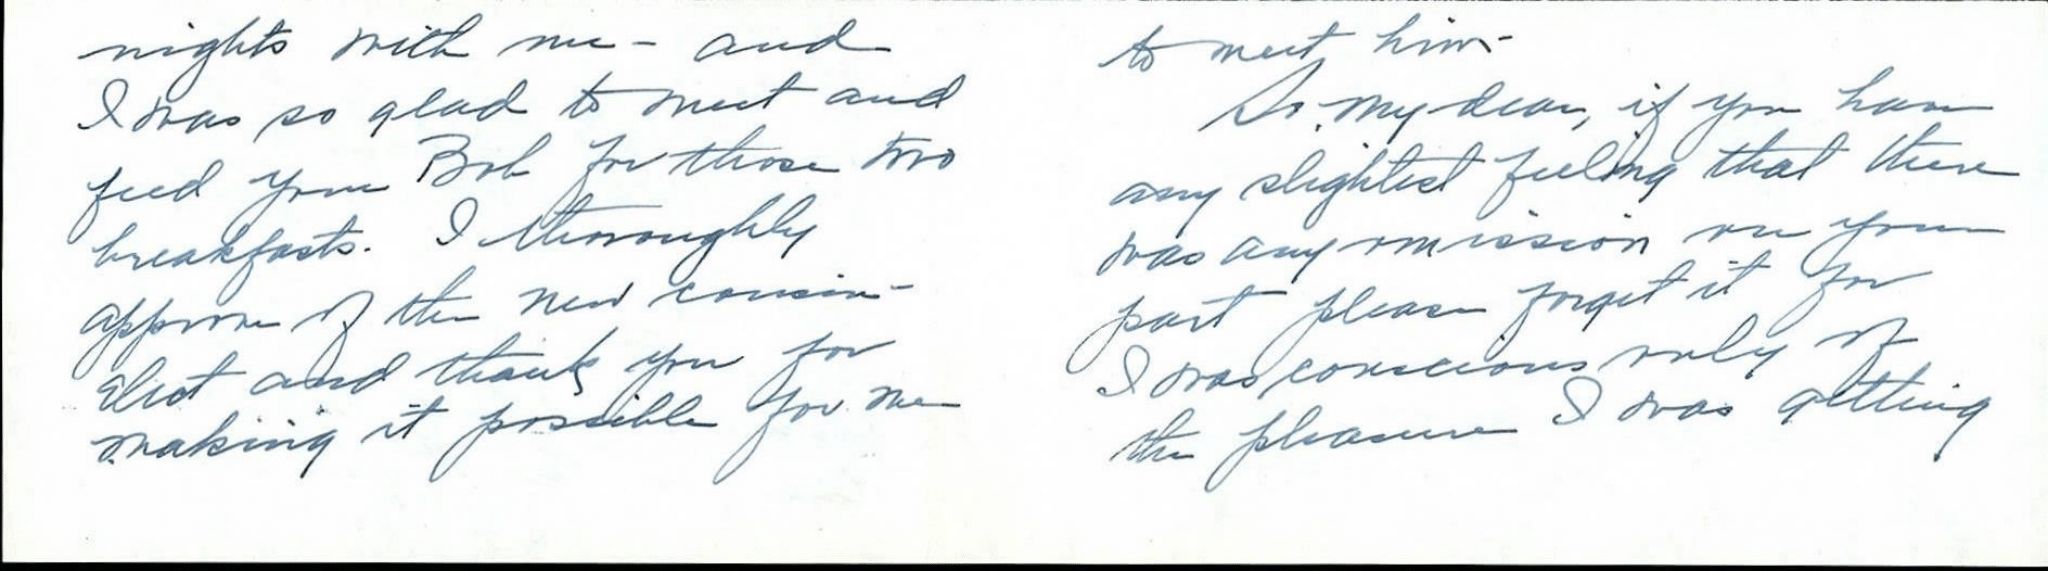 nights with me - and
I was so glad to meet and
feed your Bob for those two
breakfasts. I thoroughly
approve of the new cousin -
elect and thank you for
making it possible for me
to meet him -
So, my dear, if you have
any slightest feeling that there
was any omission on your
part please forget it for
I was conscious only of
the pleasure I was getting